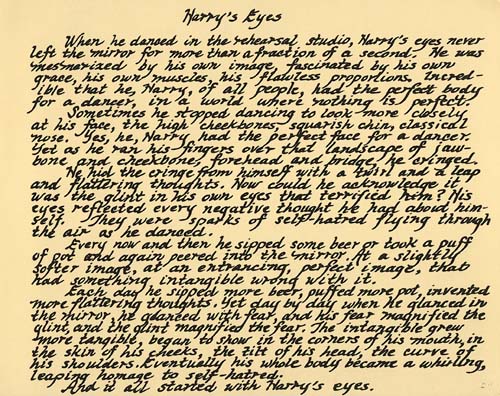 Harry's Eyes
When he danced in the rehearsal studio, Harry's eyes never
left the mirror for more than a fraction of a second. He was
mesmerized by his own image, fascinated by his own
grace, his own muscles, his flawless proportions. Incred-
ible that he, Harry, of all people, had the perfect body
for a dancer, in a world where nothing is perfect.
Sometimes he stopped dancing to look more closely
at his face, the high cheekbones, squarish chin, classical
nose. Yes, he, Harry had the perfect face for a dancer.
Yet as he ran his fingers over that landscape of jaw-
bone and cheekbone, forehead and bridge, he cringed.
He hid the cringe from himself with a twirl and a leap
and flattering thoughts. How could he acknowledge it
was the glint in his own eyes that terrified him? His
eyes reflected every negative thought he had about him-
self. They were sparks of self-hatred flying through
the air as he danced.
Every now and then he sipped some beer or took a puff
of pot and again peered into the mirror. At a slightly
softer image, at an entrancing, perfect image, that
had something intangible wrong with it.
Each day he sipped more beer, puffed more pot, invented
more flattering thoughts. Yet day by day when he glanced in
the mirror, he glanced with fear, and his fear magnified the
glint, and the glint magnified the fear. The intangible grew
more tangible, began to show in the corners of his mouth, in
the skin of his cheeks, the tilt of his head, the curve of
his shoulders. Eventually his whole body became a whirling,
leaping homage to self-hatred.
And it all started with Harry's eyes.